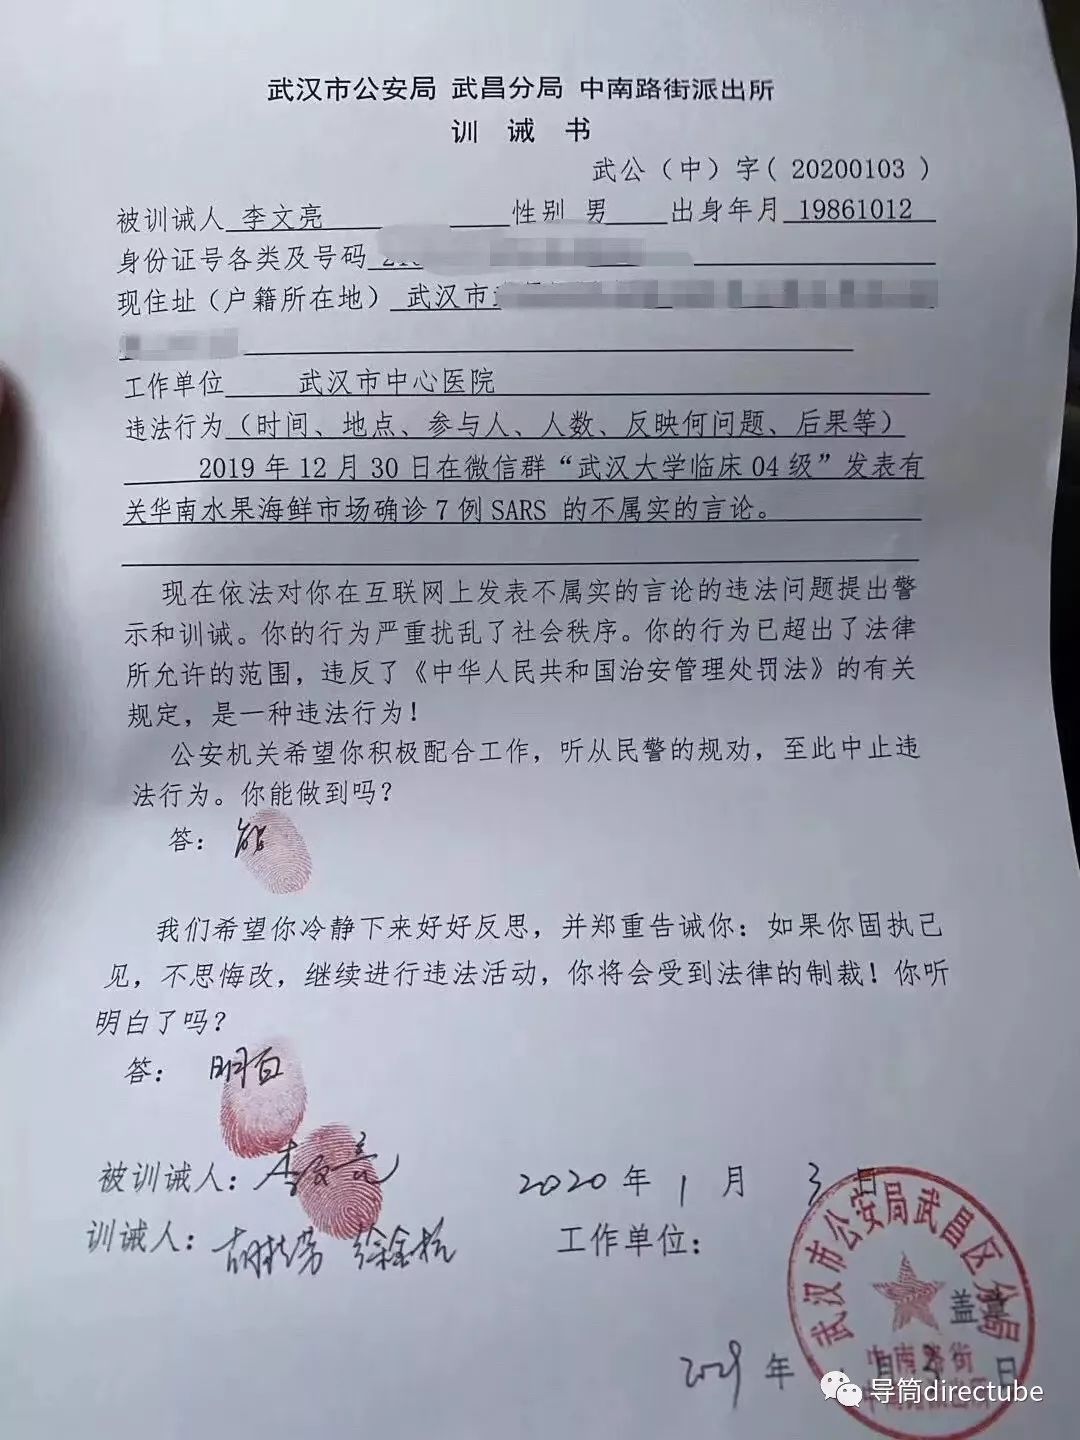 武汉市公安局 武昌分局 中南路街派出所
训 诫 书
武公（中）字( 20200103 )
被训诫人 李文亮 性别 男 出身年月 19861012
身份证号各类及号码
现住址（户籍所在地） 武汉市
工作单位 武汉市中心医院
违法行为（时间、地点、参与人、人数、反映何问题、后果等）
2019 年 12 月 30 日在微信群“武汉大学临床 04 级”发表有
关华南水果海鲜市场确诊 7 例 SARS 的不属实的言论。
现在依法对你在互联网上发表不属实的言论的违法问题提出警
示和训诫。你的行为严重扰乱了社会秩序。你的行为已超出了法律
所允许的范围，违反了《中华人民共和国治安管理处罚法》的有关
规定，是一种违法行为！
公安机关希望你积极配合工作，听从民警的规劝，至此中止违
法行为。你能做到吗？
答： 能
我们希望你冷静下来好好反思，并郑重告诫你：如果你固执己
见，不思悔改，继续进行违法活动，你将会受到法律的制裁！你听
明白了吗？
答： 明白
被训诫人：李文亮 2020 年 1 月 3 日
训诫人： 胡桂芳 徐金杭 工作单位：
武汉市公安局武昌区分局
盖章
中南路街
派出所
年 月 日
导筒directube